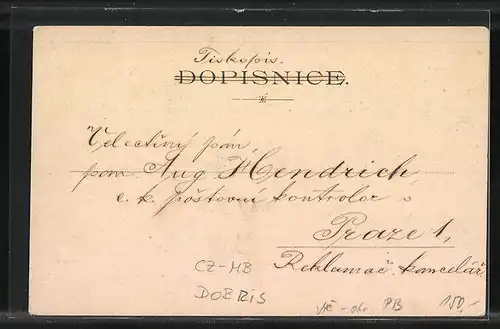 Tiskopis.
DOPISNICE.
Veléctěný pán
pan Aug Hendrich
c. k. poštovní kontrolor
v
Praze 1,
Reklamač. kancelář
CZ-MB
DOBRIS
PB
150,-